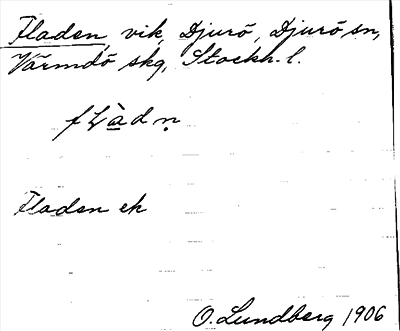 Fladen, vik, Djurö, Djurö sn,
Värmdö skg, Stockh. l.
flàdṇ
Fladen ek
O. Lundberg 1906